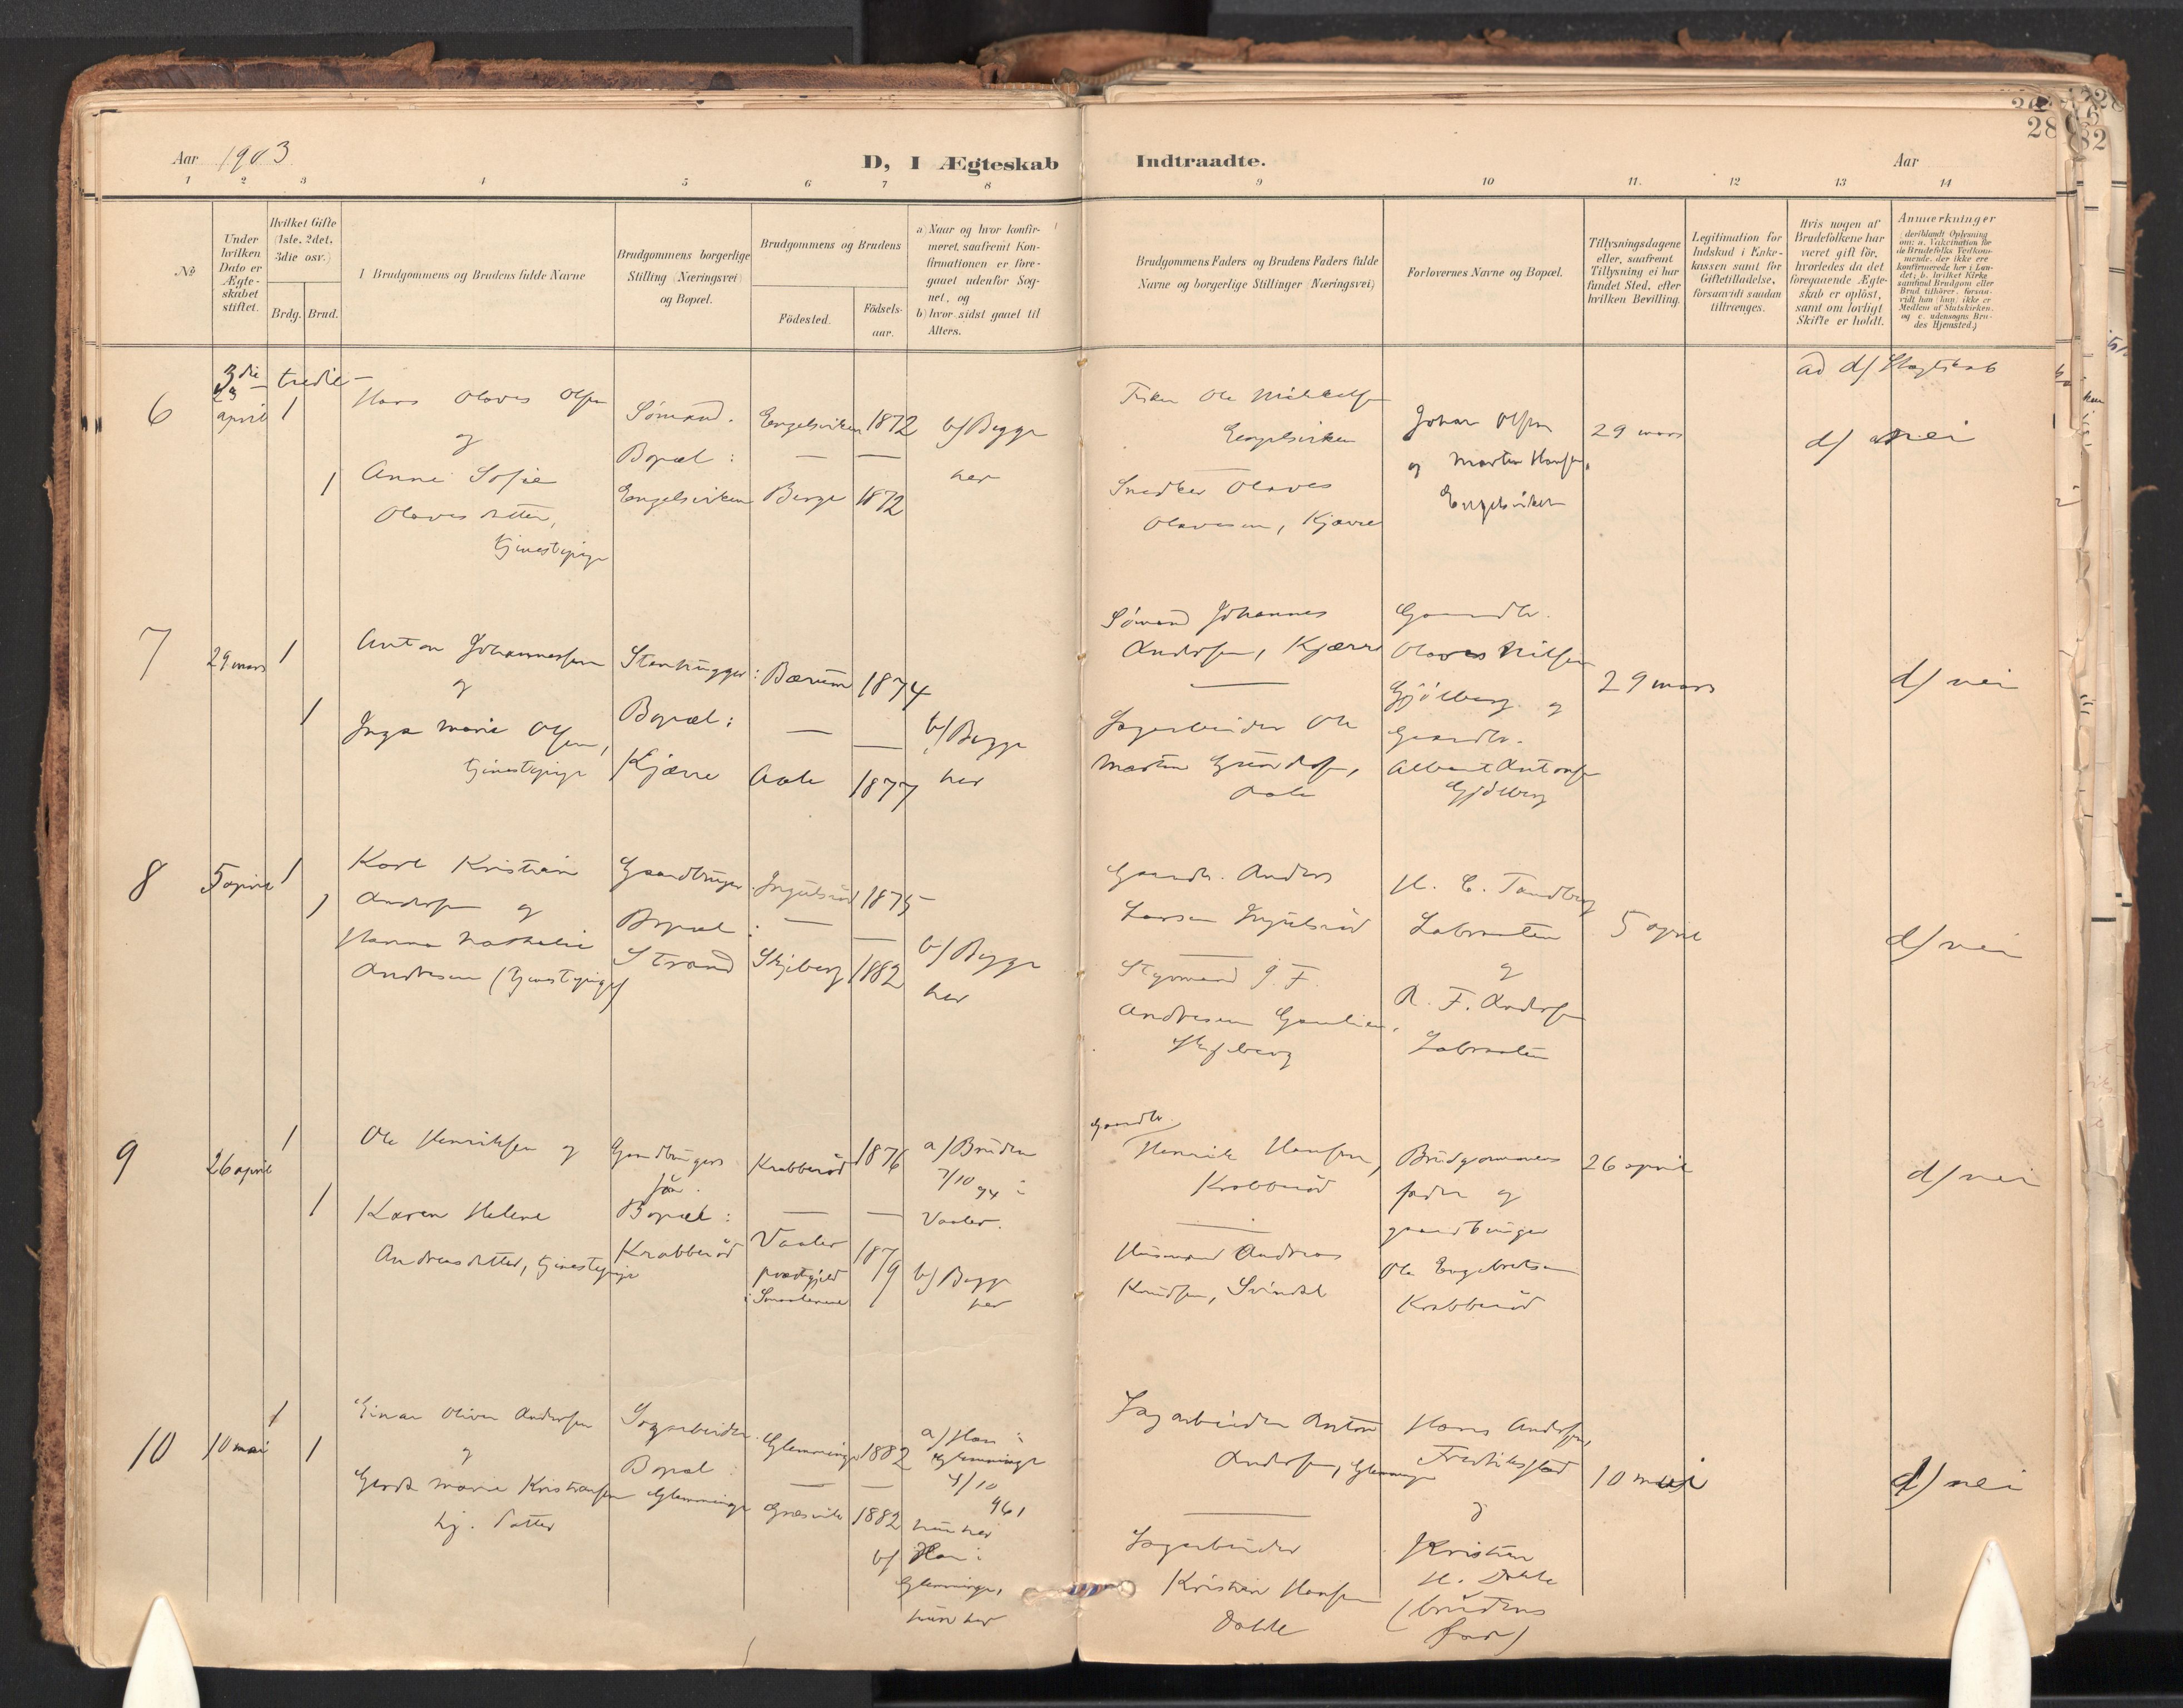 Aar 1903
D, I Ægteskab Indtraadte.
Aar
28
1 2 3 4 5 6 7 8 9 10 11. 12 13 14
No
Under hvilken Dato er Ægteskabet stiftet.
Hvilket Gifte (1ste, 2det, 3die osv.)
Brdg. Brud.
I Brudgommens og Brudens fulde Navne
Brudgommens borgerlige Stilling (Næringsvei) og Bopæl.
Brudgommens og Brudens
Födested.
Födselsaar.
a) Naar og hvor konfirmeret, saafremt Konfirmationen er foregaaet udenfor Sognet, og
b) hvor sidst gaaet til Alters.
Brudgommens Faders og Brudens Faders fulde Navne og borgerlige Stillinger (Næringsvei)
Forlovernes Navne og Bopæl.
Tillysningsdagene eller, saafremt Tillysning ei har fundet Sted, efter hvilken Bevilling.
Legitimation for Indskud i Enkekassen samt for Giftetilladelse, forsaavidt saadan tiltrænges.
Hvis nogen af Brudefolkene har været gift för, hvorledes da det foregaaende Ægteskab er oplöst, samt om lovligt Skifte er holdt.
Anmærkninger
6
3die
april
tredie
1
1
Hans Olaves Olsen
og
Anne Sofie
Olavesdatter,
tjenestepige
Sømand.
Bopæl:
Engelsviken
Engelsviken
Berge
1872
1872
b/ Begge
her
Fisker Ole Mikkelsen
Engelsviken
Snedker Olaves
Olavesen, Kjærre
Johan Olsen
og Martin Hansen,
Engelsviken
29 mars
ad d/ Slægtskab
d/ nei
7
29 mars
1
1
Anton Johannessen
og
Inga Marie Olsen,
tjenestepige
Stenhugger
Bopæl:
Kjærre
Bærum
Aale
1874
1877
b/ Begge
her
Sømand Johannes
Andersen, Kjærre
Sagarbeider Ole
Martin
Gaardbr.
Olaves Nilsen
Gjølberg og
Gaardbr.
Albert Antonsen
Gjølberg
29 mars
d/ nei
8
5 april
1
1
Karl Kristian
Andersen og
Hanna Nathalie
Andresen (tjenestepige)
Gaardbruger.
Bopæl:
Strand
Ingulsrød
Skjeberg
1875
1882
b/ Begge
her
Gaardbr. Anders
Larsen Ingulsrød
Styrmand J. F.
Andresen
Skjeberg
H. C. Tandberg
Labraaten
og
A. F. Andersen
Labraaten
5 april
d/ nei
9
26 april
1
1
Ole Henriksen og
Karen Helene
Andreasdatter, tjenestepige
Gaardbrugers
søn.
Bopæl:
Krabberød
Krabberød
Vaaler
prestgjeld
i Smaalenene
1876
1879
a/ Bruden
7/10 94 i
Vaaler.
b/ Begge
her
Gaardbr.
Henrik Hansen,
Krabberød
Husmand Andreas
Knudsen, Svindal
Brudgommens
fader og
gaardbruger
Ole Engebretsen
Krabberød
26 april
d/ nei
10
10 mai
1
1
Einar Oliver Andersen
og
Gerda Marie Kristiansen
hj. datter
Sagarbeider.
Bopæl:
Glemminge
Glemminge
Græsvik
1882
1882
a/ Han i
Glemminge
4/10
961
hun her
b/ Han i
Glemminge,
hun her
Sagarbeider Anton
Andersen, Glemminge
Sagarbeider
Kristian Hansen
Dahle
Hans Andersen,
Fredriksstad
og
Kristian
H. Dahle
(brudens
far)
10 mai
d/ nei